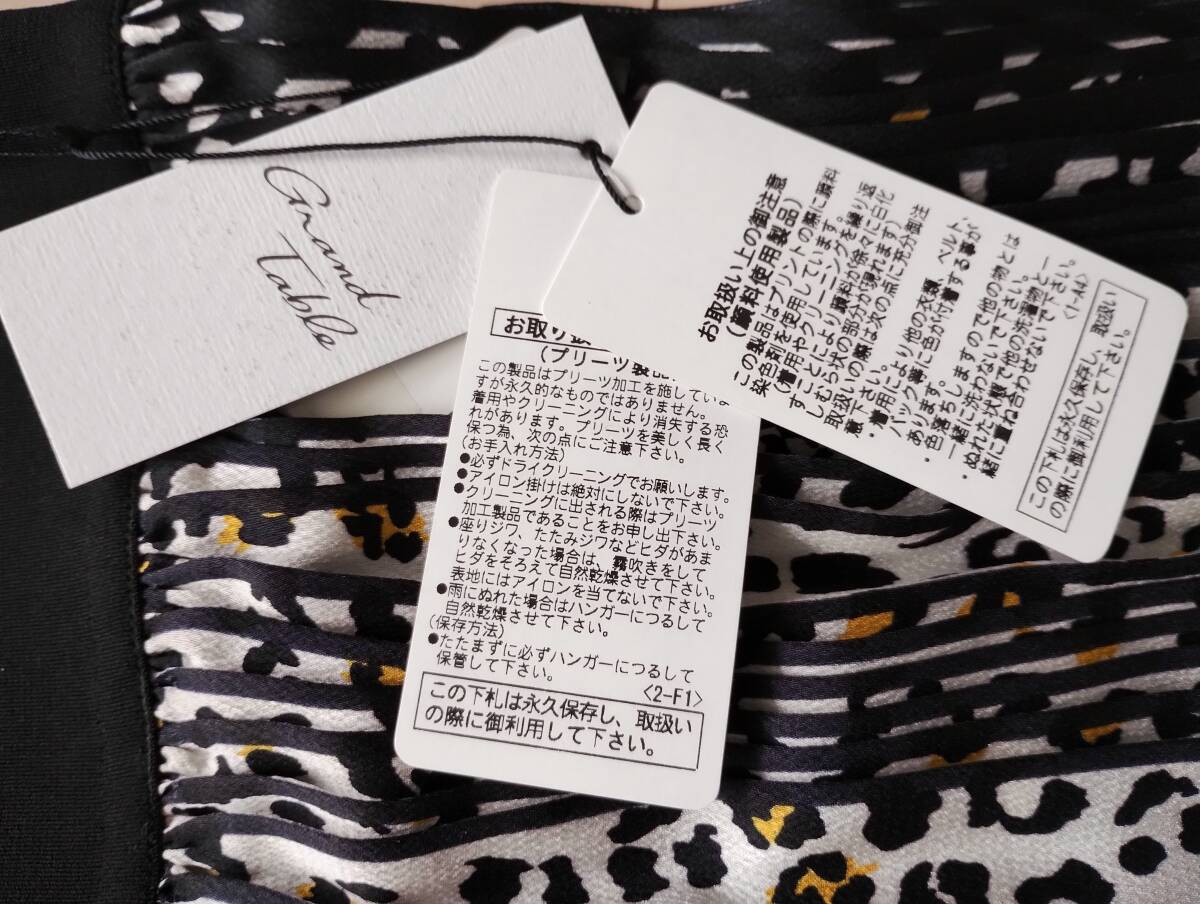 Grand
Table
お取り
(プリーツ製品
この製品はプリーツ加工を施していま
すが永久的なものではありません。
着用やクリーニングにより消失する恐
れがあります。プリーツを美しく長く
保つ為、次の点にご注意下さい。
(お手入れ方法)
●必ずドライクリーニングでお願いします。
●アイロン掛けは絶対にしないで下さい。
●クリーニングに出される際はプリーツ
加工製品であることをお申し出下さい。
●座りジワ、たたみジワなどヒダがあま
りなくなった場合は、霧吹きをして
ヒダをそろえて自然乾燥させて下さい。
表地にはアイロンを当てないで下さい。
●雨にぬれた場合はハンガーにつるして
自然乾燥させて下さい。
(保存方法)
●たたまずに必ずハンガーにつるして
保管して下さい。
<2-F1>
この下札は永久保存し、取扱い
の際に御利用して下さい。
お取扱い上の御注意
(顔料使用製品)
この製品はプリントの際に顔料
染色剤を使用しています。
(着用やクリーニングを繰り返
すことにより顔料が徐々に白化
しむら状の部分が現れます)
取扱いの際は次の点に充分御注
意下さい。
・着用により他の衣類、ベルト、
バック等に色が付着する事が
あります。
・色落ちしますので他の物とは
一緒に洗わないで下さい。
ぬれた状態で他の洗濯物と一
緒に重ね合わせないで下さい。
<1-A4>
この下札は永久保存し、取扱い
の際に御利用して下さい。